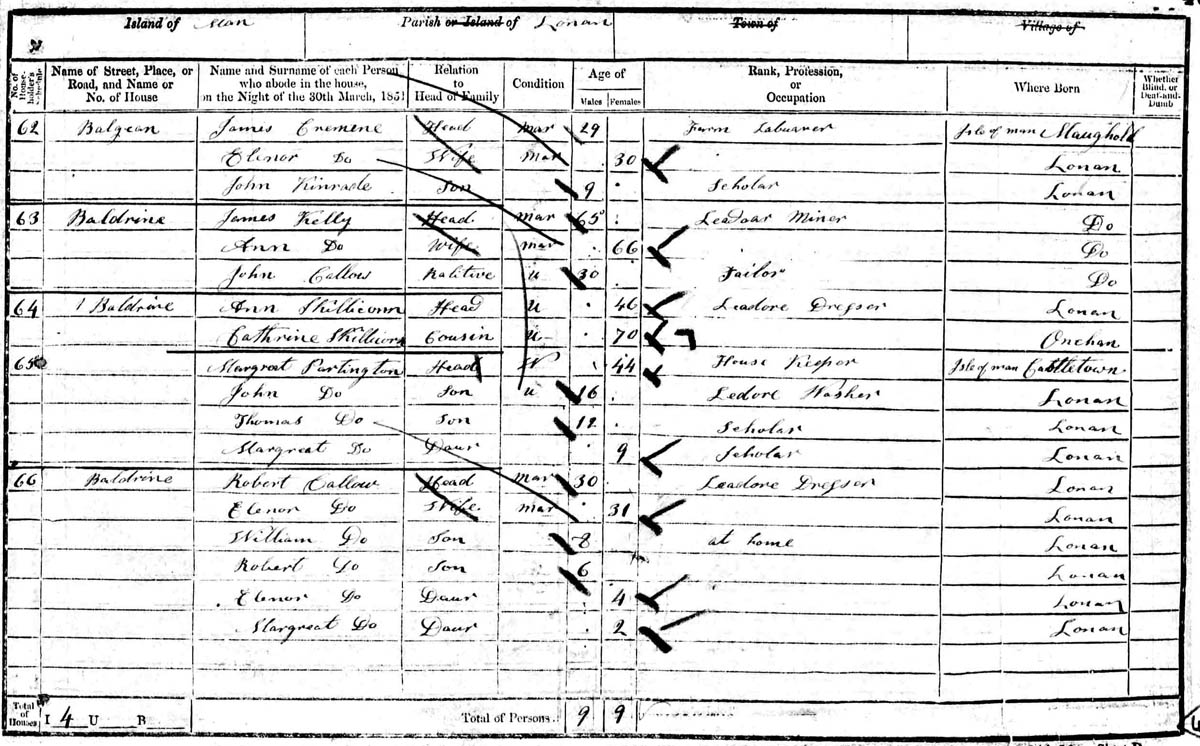 Island of Man Parish or Island of Lonan Town of Village of
No. of House-holder's Schedule Name of Street, Place, or Road, and Name or No. of House Name and Surname of each Person who abode in the house, on the Night of the 30th March, 1851 Relation to Head of Family Condition Age of Males Females Rank, Profession, or Occupation Where Born Whether Blind, or Deaf-and-Dumb
62 Balgean James Cremene Head Mar 29 Farm Labourer Isle of man Maughold
Elenor Do Wife Mar 30 Lonan
John Kinrade Son 9 Scholar Lonan
63 Baldrine James Kelly Head Mar 65 Leadoar Miner Do
Ann Do Wife Mar 66 Do
John Callow Ralitive U 30 Tailor Do
64 1 Baldrine Ann Skillicorn Head U 46 Leadore Dresser Lonan
Cathrine Skillicorn Cousin U 70 Onchan
65 Margreat Partington Head 44 House Keeper Isle of man Castletown
John Do Son U 16 Ledore Washer Lonan
Thomas Do Son 12 Scholar Lonan
Margreat Do Daur 9 Scholar Lonan
66 Baldrine Robert Callow Head Mar 30 Leadore Dresser Lonan
Elenor Do Wife Mar 31 Lonan
William Do Son 8 at home Lonan
Robert Do Son 6 Lonan
Elenor Do Daur 4 Lonan
Margreat Do Daur 2 Lonan
Total of Houses I 4 U B Total of Persons 9 9